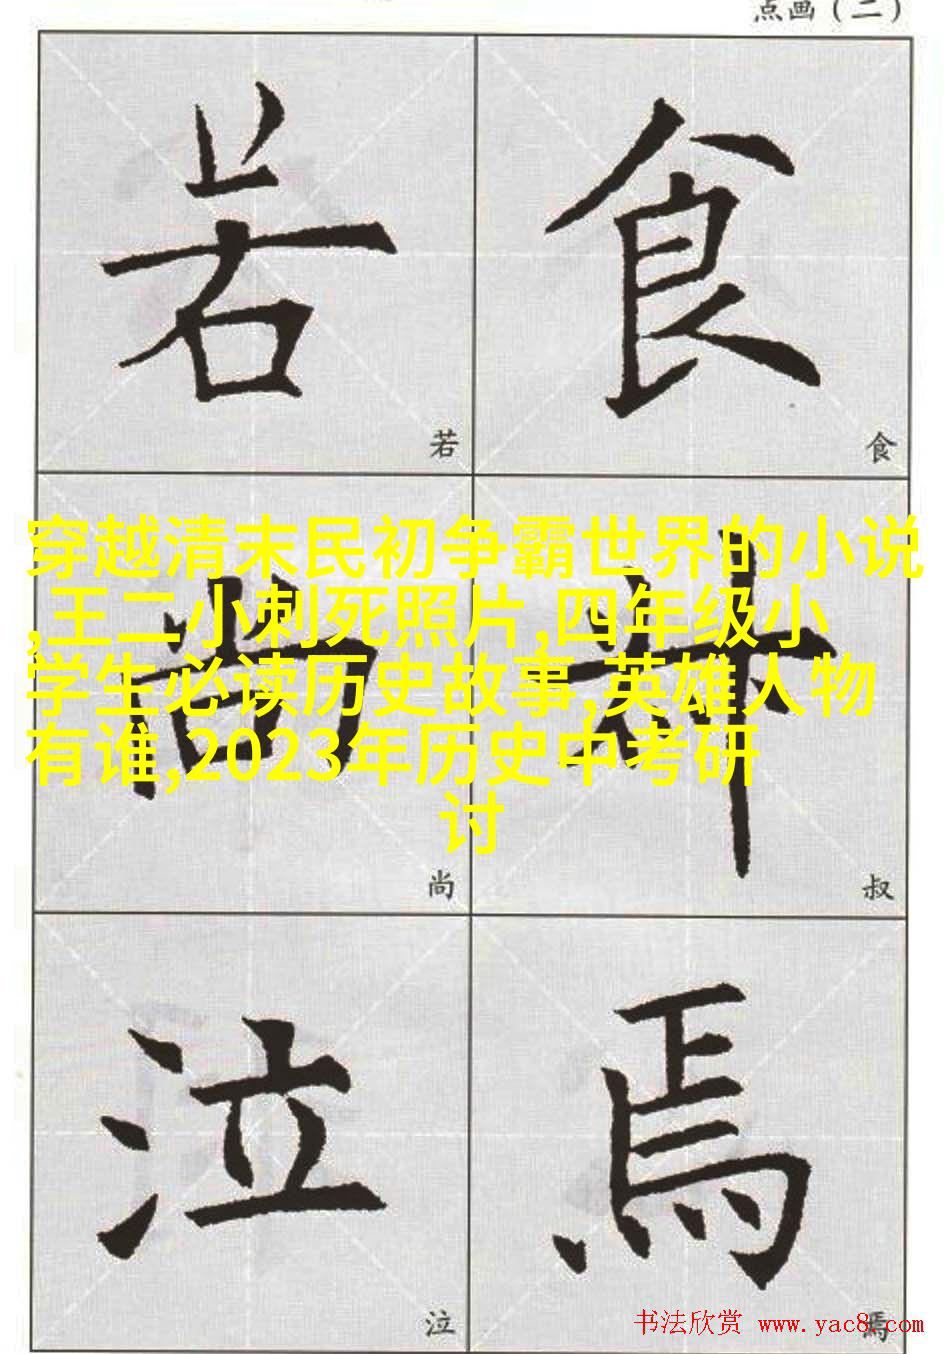 点画（二）
若
食
若
食
穿越清末民初争霸世界的小说
,王二小刺死照片,四年级小
学生必读历史故事,英雄人物
有谁,2023年历史中考研
讨
尚
叔
尚
叔
泣
焉
泣
焉
书法欣赏 www.yac8.com